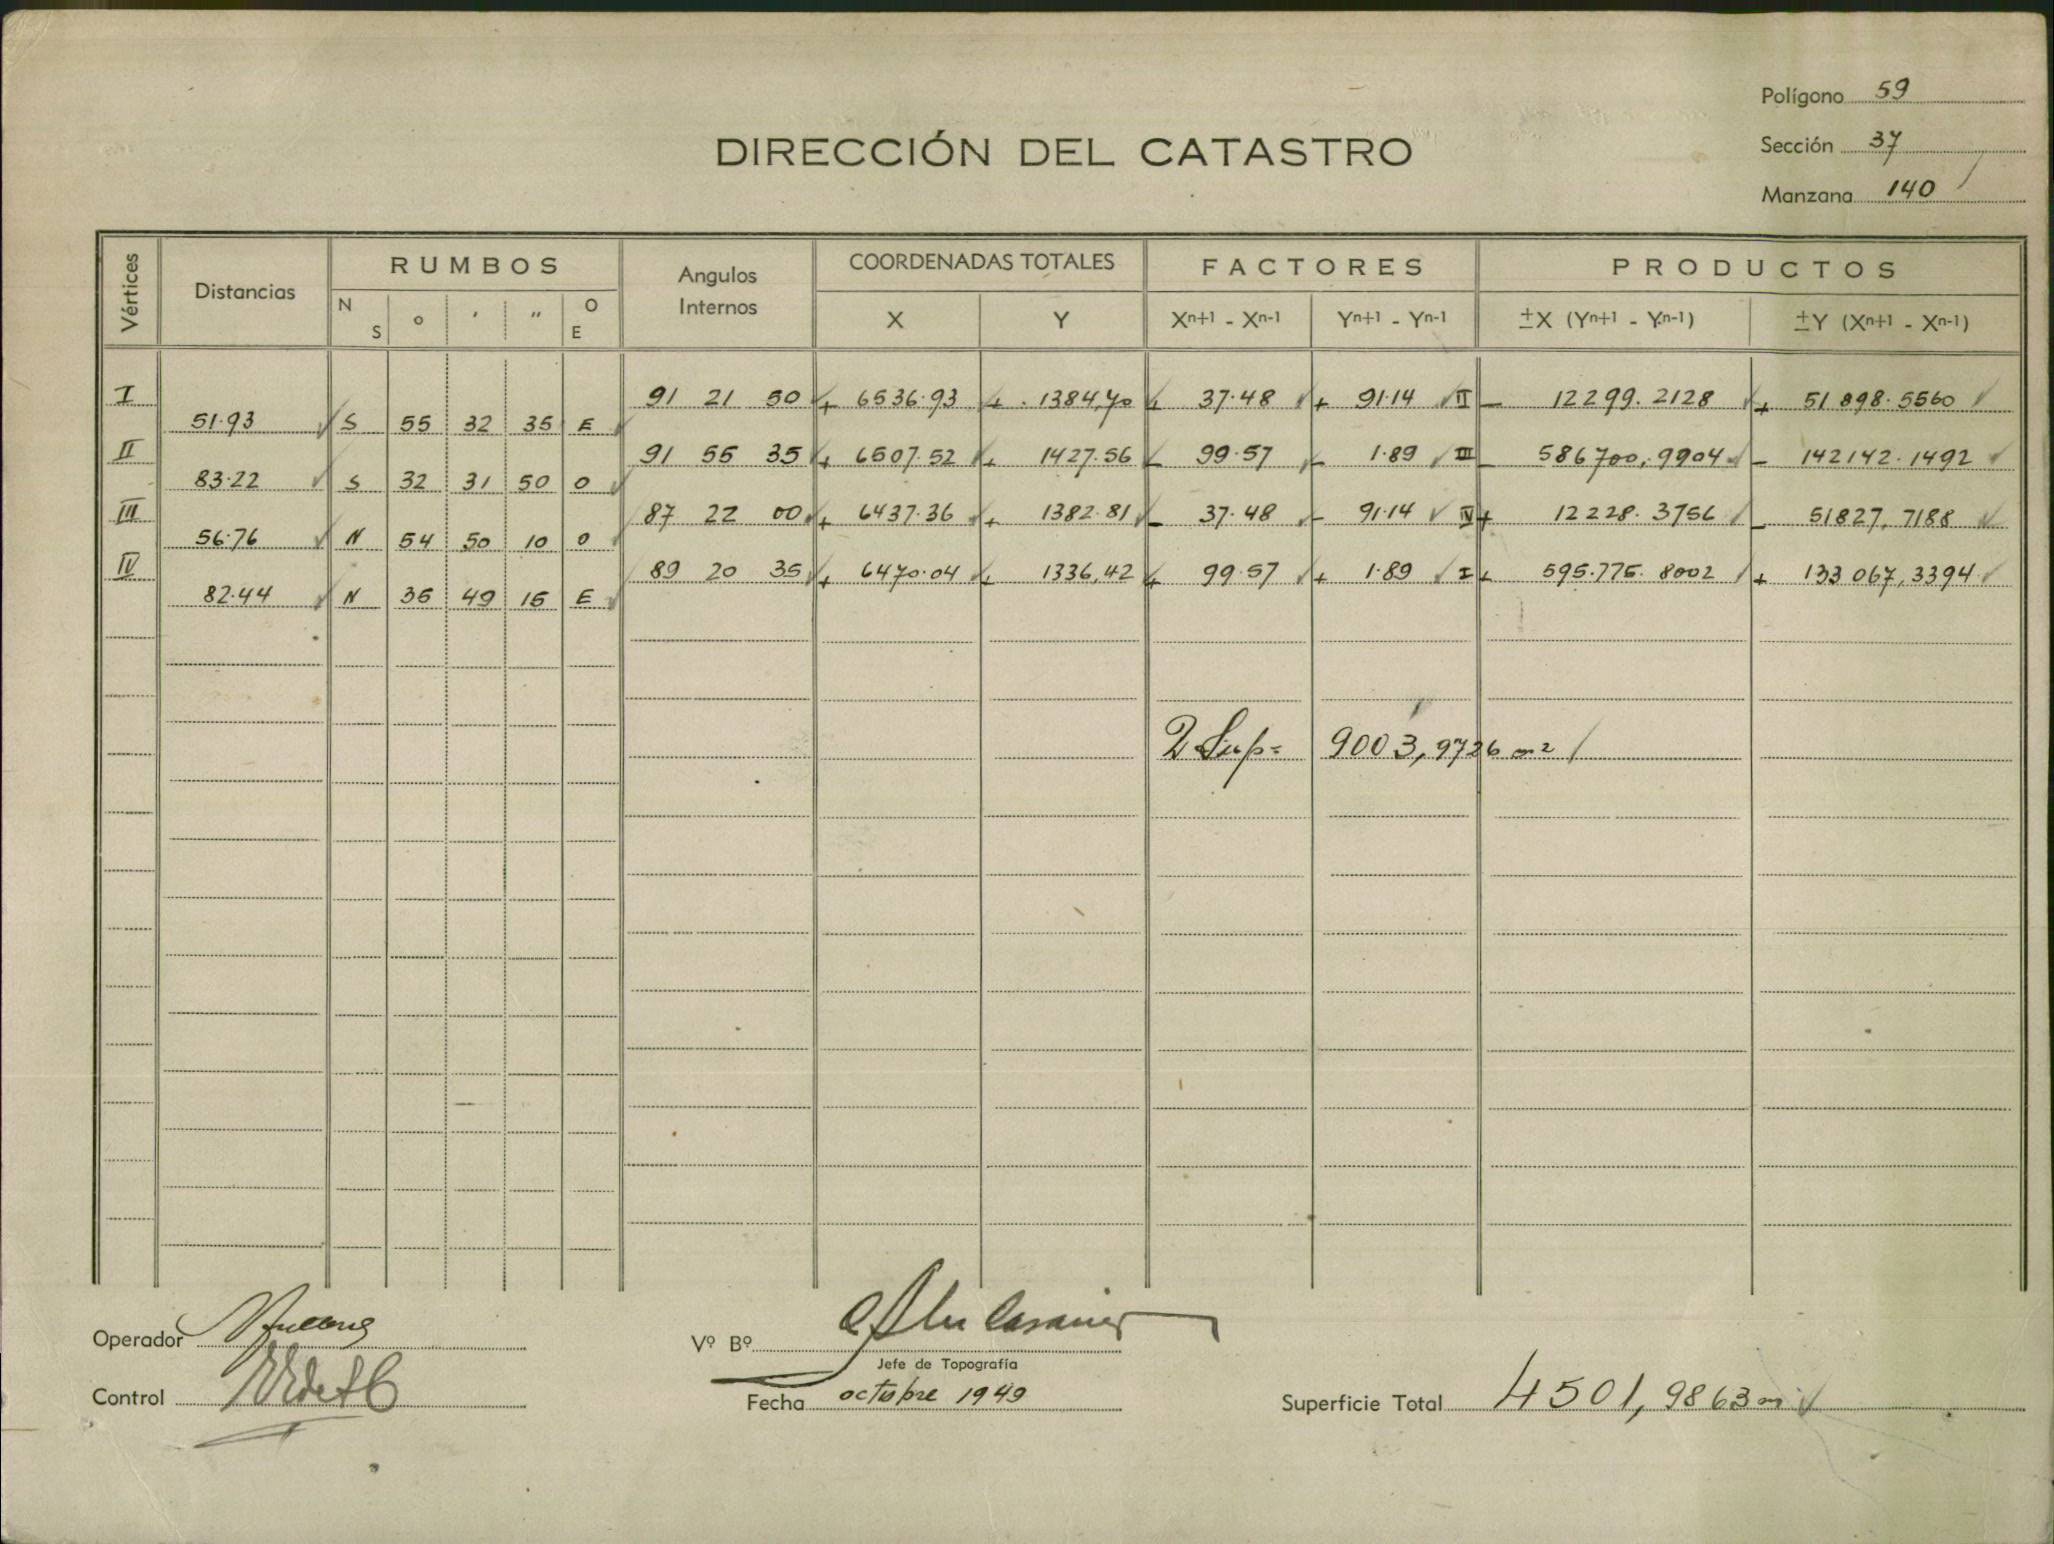 Polígono 59
DIRECCIÓN DEL CATASTRO
Sección 37
Manzana 140
Vértices Distancias RUMBOS Angulos Internos COORDENADAS TOTALES FACTORES PRODUCTOS
N S ° ' " O E X Y Xn+1 - Xn-1 Yn+1 - Yn-1 ±X (Yn+1 - Yn-1) ±Y (Xn+1 - Xn-1)
I 91 21 50 + 6536.93 + 1384,70 + 37.48 + 91.14 II - 12299.2128 + 51898.5560
51.93 S 55 32 35 E
II 91 55 35 + 6507.52 + 1427.56 - 99.57 - 1.89 III - 586700,9904 - 142142.1492
83.22 S 32 31 50 O
III 87 22 00 + 6437.36 + 1382.81 - 37.48 - 91.14 IV + 12228.3756 - 51827,7188
56.76 N 54 50 10 O
IV 89 20 35 + 6470.04 + 1336,42 + 99.57 + 1.89 I + 595.775.8002 + 133067,3394
82.44 N 35 49 15 E
2 Sup= 9003,9726 m2
Operador
Vº Bº
Jefe de Topografía
Control
Fecha octubre 1949
Superficie Total 4501,9863 m